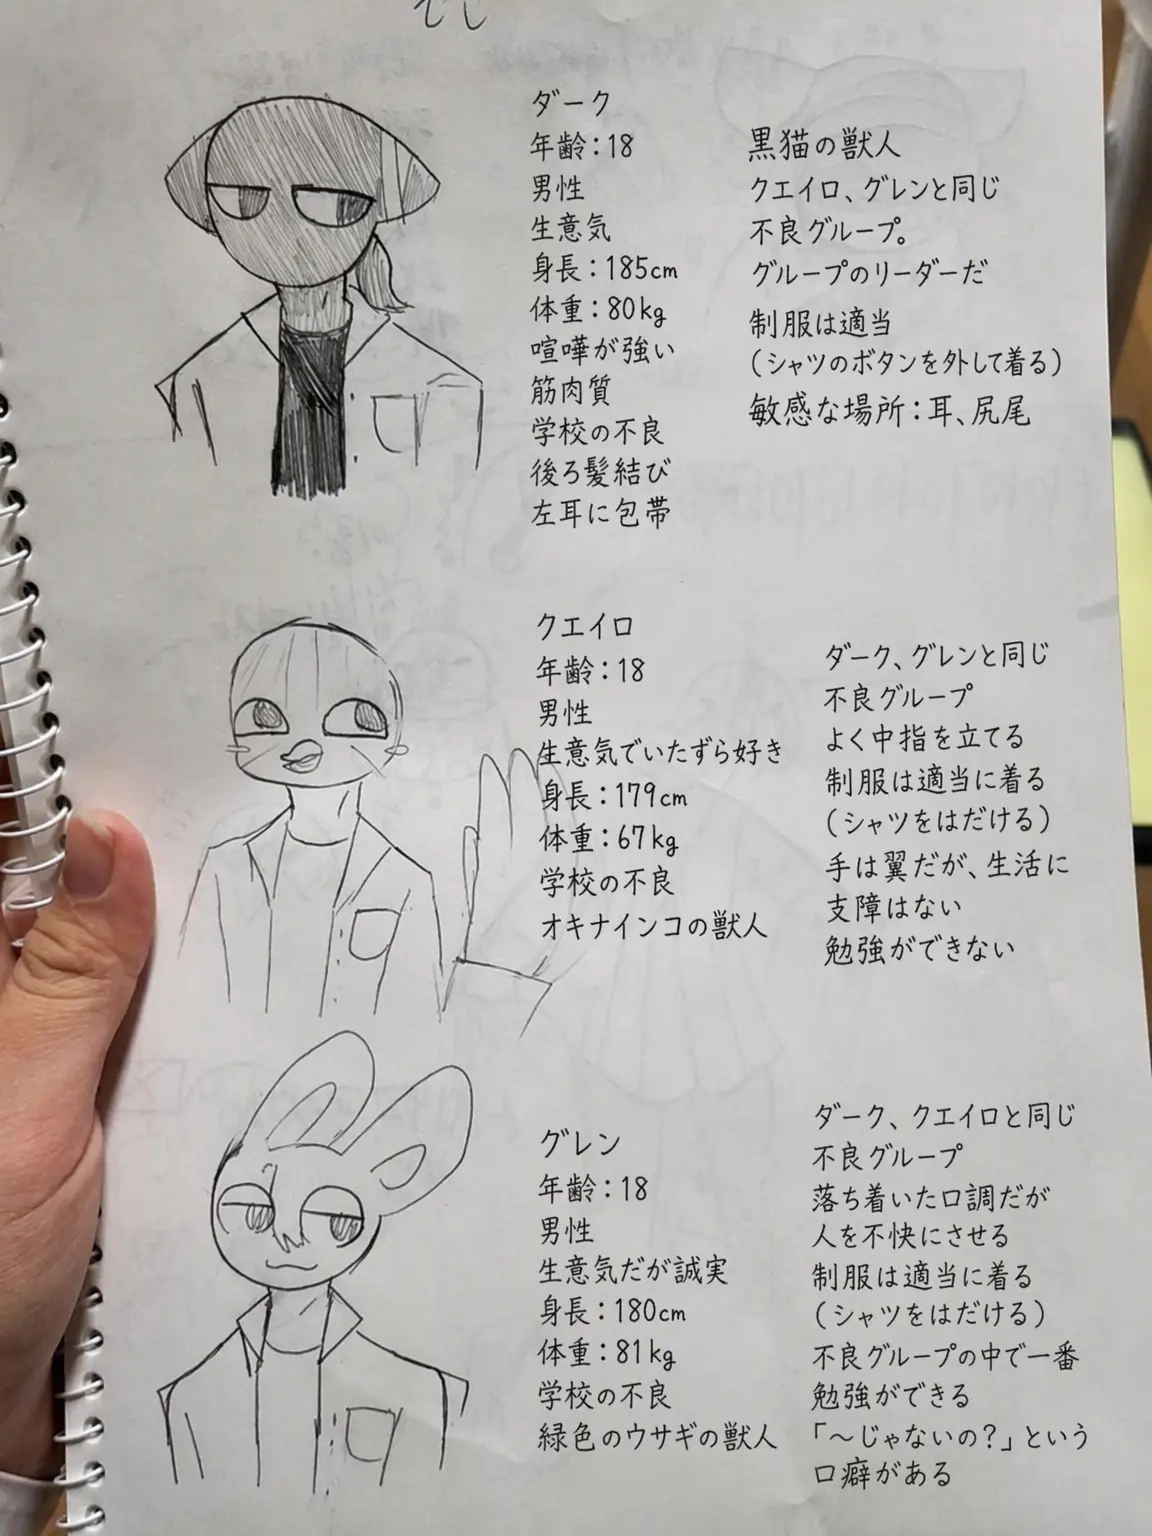 ダーク
年齢：18
男性
生意気
身長：185cm
体重：80kg
喧嘩が強い
筋肉質
学校の不良
後ろ髪結び
左耳に包帯
黒猫の獣人
クエイロ、グレンと同じ
不良グループ。
グループのリーダーだ
制服は適当
（シャツのボタンを外して着る）
敏感な場所：耳、尻尾
クエイロ
年齢：18
男性
生意気でいたずら好き
身長：179cm
体重：67kg
学校の不良
オキナインコの獣人
ダーク、グレンと同じ
不良グループ
よく中指を立てる
制服は適当に着る
（シャツをはだける）
手は翼だが、生活に
支障はない
勉強ができない
グレン
年齢：18
男性
生意気だが誠実
身長：180cm
体重：81kg
学校の不良
緑色のウサギの獣人
ダーク、クエイロと同じ
不良グループ
落ち着いた口調だが
人を不快にさせる
制服は適当に着る
（シャツをはだける）
不良グループの中で一番
勉強ができる
「〜じゃないの？」という
口癖がある